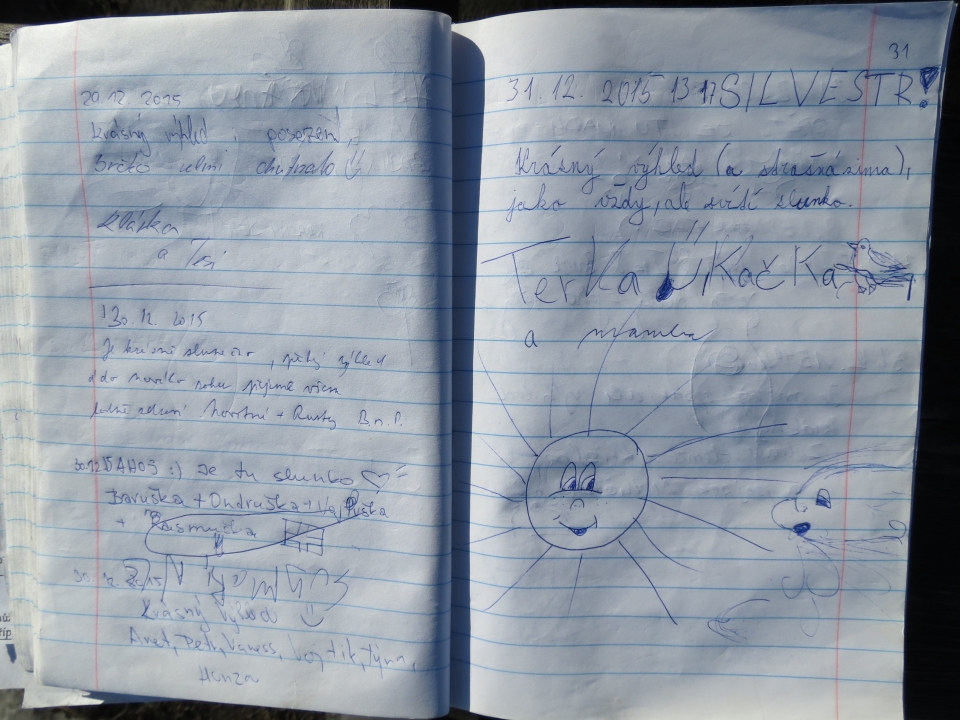 29.12 2015
Krásný výhled, posezení,
velmi chutnalo
Klárka
a
30.12 2015
Je krásné sluníčko, pěkný výhled
a do nového roku přejeme všem
hodně zdraví + B.n.P.
30.12.15 AHOJ :) Je tu slunko
Baruška + Ondruška +
+ Rasmuška
30.12.2015
Krásný výhled
Anet, Petr, týna,
Honza
31
31.12. 2015 13:17 SILVESTR!
Krásný výhled (a strašná zima),
jako vždy, ale svítí slunko.
TerKa ÜKačKa
a mamka